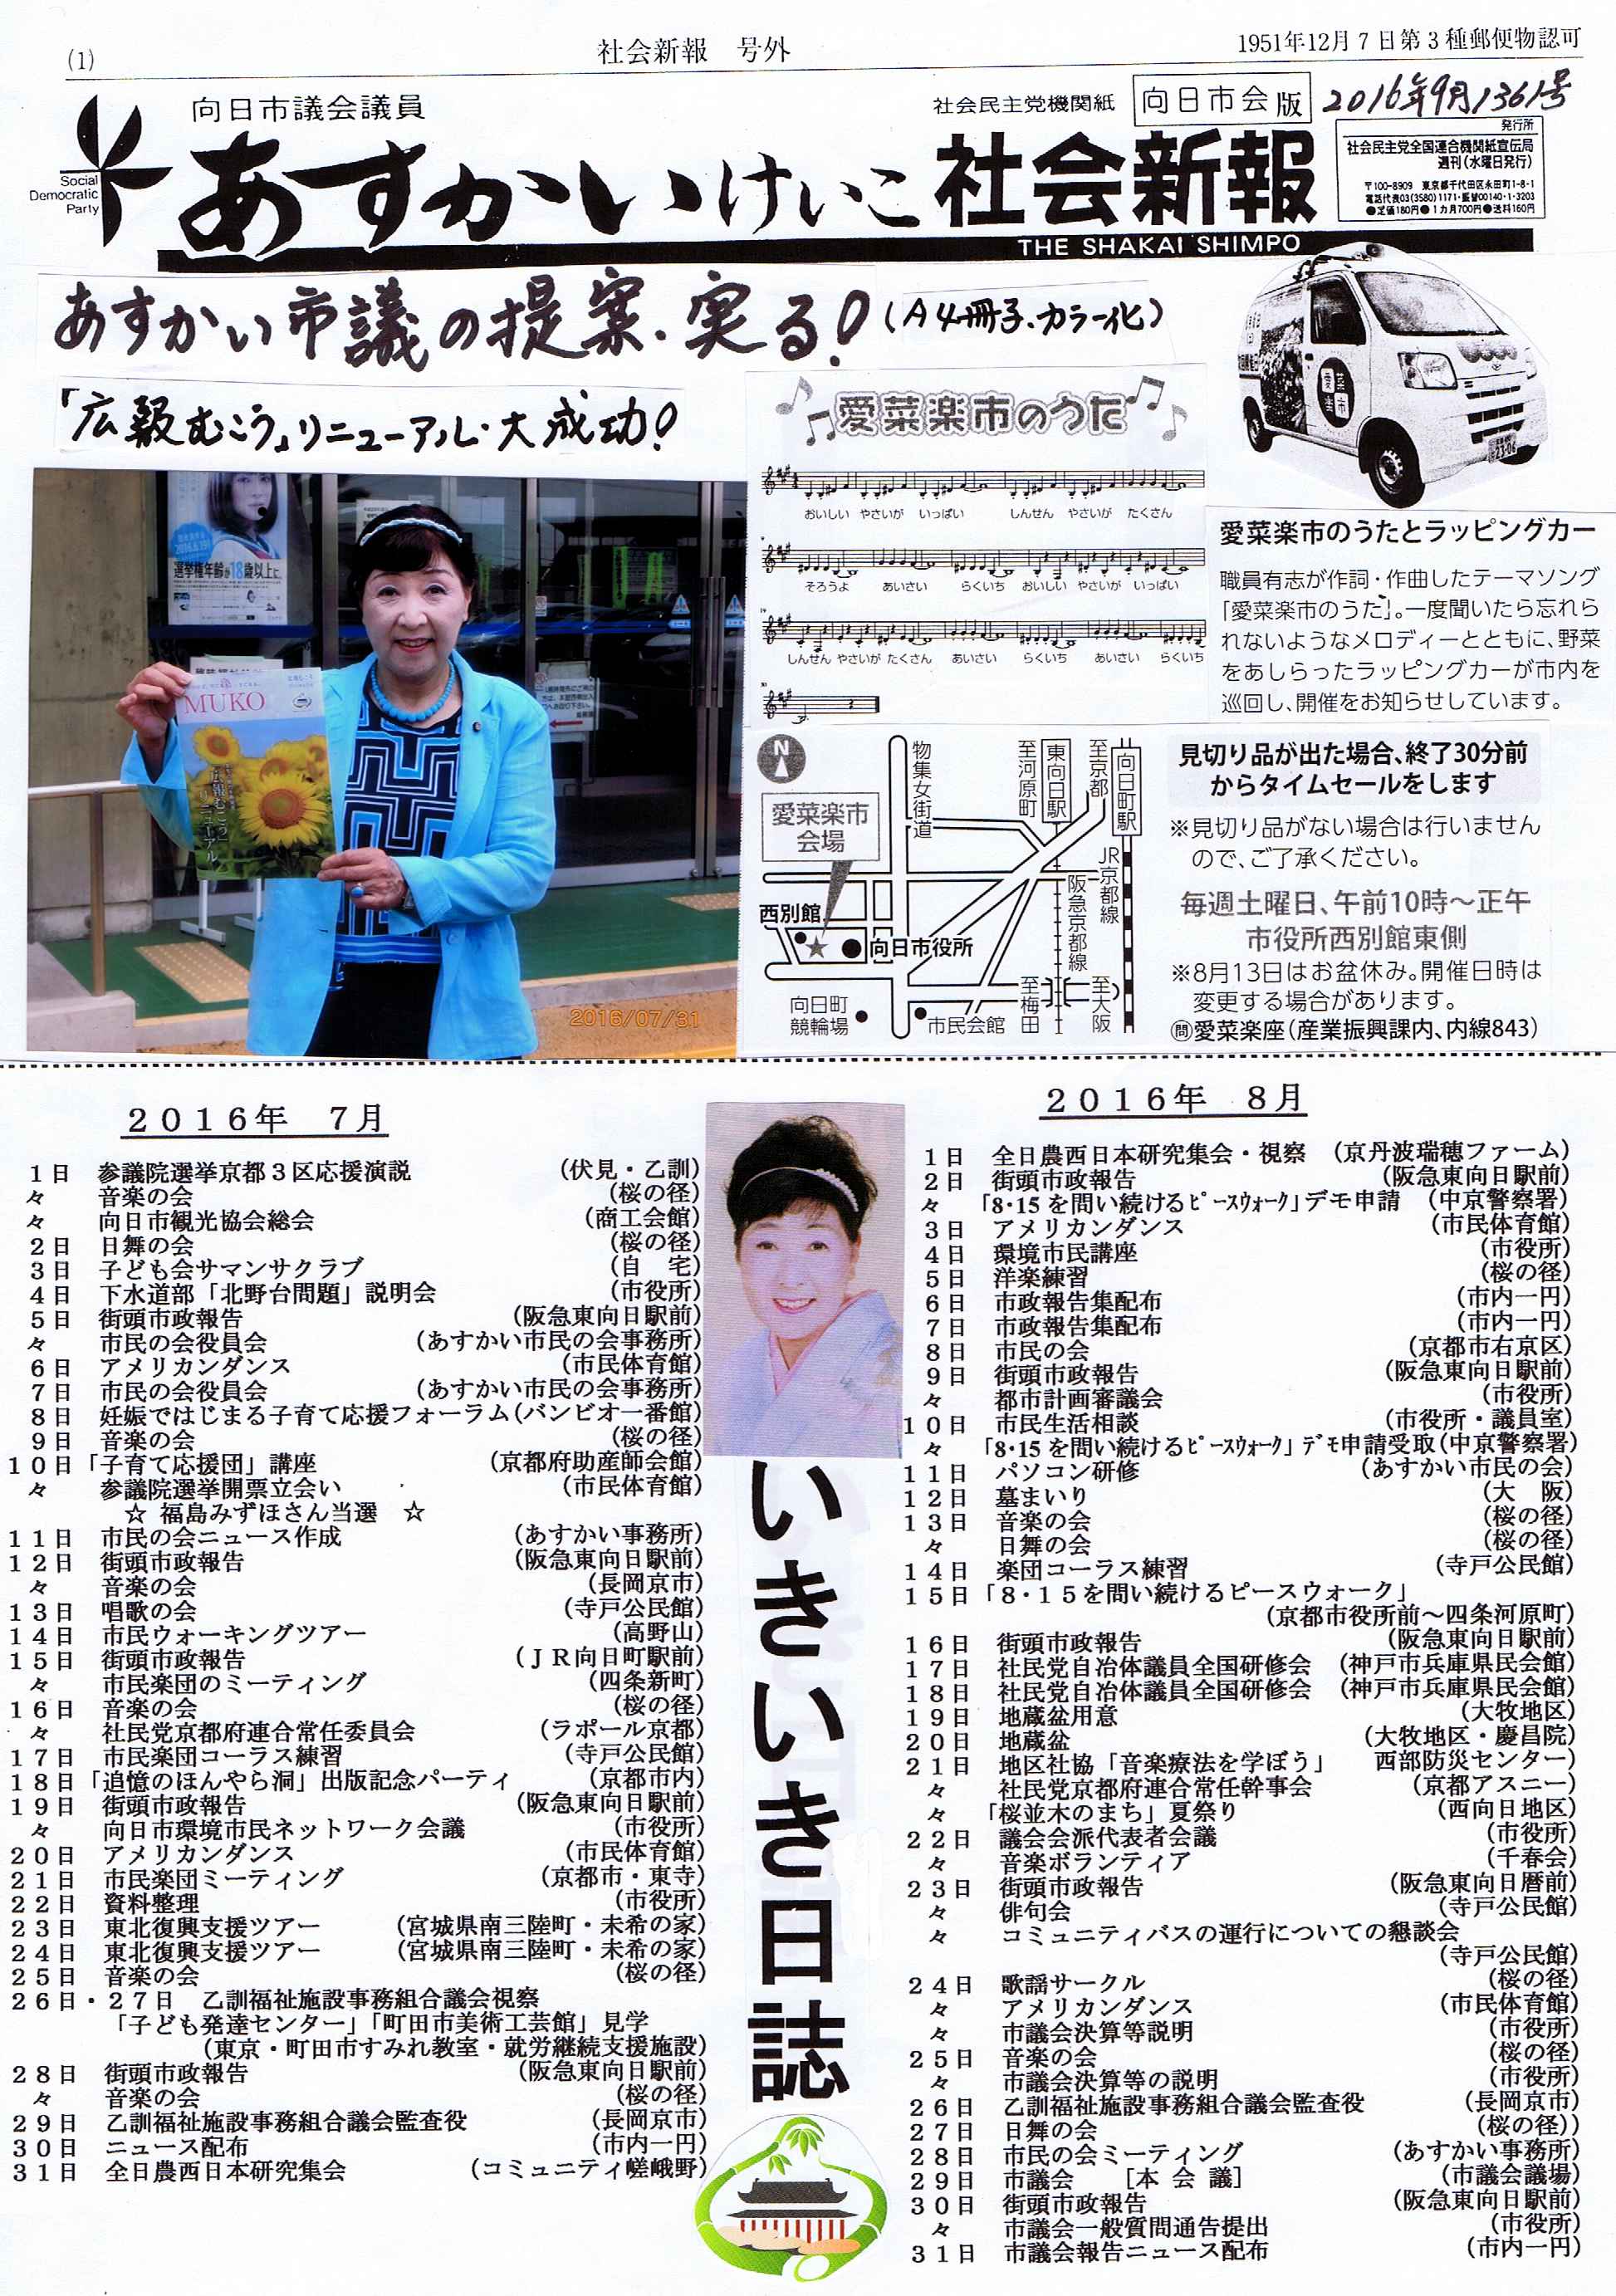 (1)
社会新報　号外
1951年12月7日第3種郵便物認可
向日市議会議員
Social
Democratic
Party
あすかいけいこ
社会民主党機関紙
向日市会版
2016年9月1361号
社会新報
THE SHAKAI SHIMPO
発行所
社会民主党全国連合機関紙宣伝局
週刊(水曜日発行)
〒100-8909　東京都千代田区永田町1-8-1
電話代表03(3580)1171・振替00140-1-3203
●定価180円●1カ月700円●送料160円
あすかい市議の提案・実る!
(A4冊子・カラー化)
「広報むこう」リニューアル・大成功!
選挙権年齢が18歳以上に。
MUKO
「広報むこう」
リニューアル
2016/07/31
愛菜楽市のうた
おいしい やさいが いっぱい しんせん やさいが たくさん
そろうよ あいさい らくいち おいしい やさいが いっぱい
しんせん やさいが たくさん あいさい らくいち あいさい らくいち
愛菜楽市
23-06
愛菜楽市のうたとラッピングカー
職員有志が作詞・作曲したテーマソング
「愛菜楽市のうた」。一度聞いたら忘れら
れないようなメロディーとともに、野菜
をあしらったラッピングカーが市内を
巡回し、開催をお知らせしています。
N
物集女街道
至河原町
東向日駅
至京都
向日町駅
愛菜楽市
会場
JR京都線
阪急京都線
西別館
向日市役所
向日町
競輪場
市民会館
至梅田
至大阪
見切り品が出た場合、終了30分前
からタイムセールをします
※見切り品がない場合は行いません
ので、ご了承ください。
毎週土曜日、午前10時～正午
市役所西別館東側
※8月13日はお盆休み。開催日時は
変更する場合があります。
問愛菜楽座(産業振興課内、内線843)
2016年　7月
1日　参議院選挙京都3区応援演説　(伏見・乙訓)
々　音楽の会　(桜の径)
々　向日市観光協会総会　(商工会館)
2日　日舞の会　(桜の径)
3日　子ども会サマンサクラブ　(自　宅)
4日　下水道部「北野台問題」説明会　(市役所)
5日　街頭市政報告　(阪急東向日駅前)
々　市民の会役員会　(あすかい市民の会事務所)
6日　アメリカンダンス　(市民体育館)
7日　市民の会役員会　(あすかい市民の会事務所)
8日　妊娠ではじまる子育て応援フォーラム(バンビオ一番館)
9日　音楽の会　(桜の径)
10日「子育て応援団」講座　(京都府助産師会館)
々　参議院選挙開票立会い　(市民体育館)
☆ 福島みずほさん当選　☆
11日　市民の会ニュース作成　(あすかい事務所)
12日　街頭市政報告　(阪急東向日駅前)
々　音楽の会　(長岡京市)
13日　唱歌の会　(寺戸公民館)
14日　市民ウォーキングツアー　(高野山)
15日　街頭市政報告　(JR向日町駅前)
々　市民楽団のミーティング　(四条新町)
16日　音楽の会　(桜の径)
々　社民党京都府連合常任委員会　(ラポール京都)
17日　市民楽団コーラス練習　(寺戸公民館)
18日「追憶のほんやら洞」出版記念パーティ　(京都市内)
19日　街頭市政報告　(阪急東向日駅前)
々　向日市環境市民ネットワーク会議　(市役所)
20日　アメリカンダンス　(市民体育館)
21日　市民楽団ミーティング　(京都市・東寺)
22日　資料整理　(市役所)
23日　東北復興支援ツアー　(宮城県南三陸町・未希の家)
24日　東北復興支援ツアー　(宮城県南三陸町・未希の家)
25日　音楽の会　(桜の径)
26日・27日　乙訓福祉施設事務組合議会視察
「子ども発達センター」「町田市美術工芸館」見学
(東京・町田市すみれ教室・就労継続支援施設)
28日　街頭市政報告　(阪急東向日駅前)
々　音楽の会　(桜の径)
29日　乙訓福祉施設事務組合議会監査役　(長岡京市)
30日　ニュース配布　(市内一円)
31日　全日農西日本研究集会　(コミュニティ嵯峨野)
いきいき日誌
2016年　8月
1日　全日農西日本研究集会・視察　(京丹波瑞穂ファーム)
2日　街頭市政報告　(阪急東向日駅前)
々　「8・15を問い続けるピースウォーク」デモ申請　(中京警察署)
3日　アメリカンダンス　(市民体育館)
4日　環境市民講座　(市役所)
5日　洋楽練習　(桜の径)
6日　市政報告集配布　(市内一円)
7日　市政報告集配布　(市内一円)
8日　市民の会　(京都市右京区)
9日　街頭市政報告　(阪急東向日駅前)
々　都市計画審議会　(市役所)
10日　市民生活相談　(市役所・議員室)
々　「8・15を問い続けるピースウォーク」デモ申請受取(中京警察署)
11日　パソコン研修　(あすかい市民の会)
12日　墓まいり　(大　阪)
13日　音楽の会　(桜の径)
々　日舞の会　(桜の径)
14日　楽団コーラス練習　(寺戸公民館)
15日「8・15を問い続けるピースウォーク」
(京都市役所前～四条河原町)
16日　街頭市政報告　(阪急東向日駅前)
17日　社民党自治体議員全国研修会　(神戸市兵庫県民会館)
18日　社民党自治体議員全国研修会　(神戸市兵庫県民会館)
19日　地蔵盆用意　(大牧地区)
20日　地蔵盆　(大牧地区・慶昌院)
21日　地区社協「音楽療法を学ぼう」　西部防災センター)
々　社民党京都府連合常任幹事会　(京都アスニー)
々　「桜並木のまち」夏祭り　(西向日地区)
22日　議会会派代表者会議　(市役所)
々　音楽ボランティア　(千春会)
23日　街頭市政報告　(阪急東向日暦前)
々　俳句会　(寺戸公民館)
々　コミュニティバスの運行についての懇談会
(寺戸公民館)
24日　歌謡サークル　(桜の径)
々　アメリカンダンス　(市民体育館)
々　市議会決算等説明　(市役所)
25日　音楽の会　(桜の径)
々　市議会決算等の説明　(市役所)
26日　乙訓福祉施設事務組合議会監査役　(長岡京市)
27日　日舞の会　(桜の径))
28日　市民の会ミーティング　(あすかい事務所)
29日　市議会　[本 会 議]　(市議会議場)
30日　街頭市政報告　(阪急東向日駅前)
々　市議会一般質問通告提出　(市役所)
31日　市議会報告ニュース配布　(市内一円)